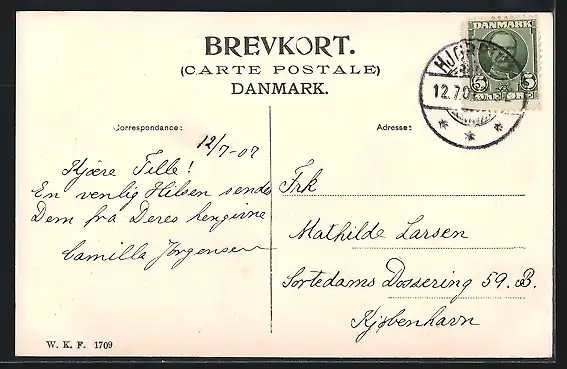 BREVKORT.
(CARTE POSTALE)
DANMARK.
DANMARK
5 5
12.7.0
Correspondance:
Adresse:
12/7-07
Kjære Tille!
En venlig Hilsen sendes
Dem fra Deres hengivne
Camilla Jørgensen
Frk
Mathilde Larsen
Sortedams Dossering 59. B.
Kjøbenhavn
W. K. F. 1709